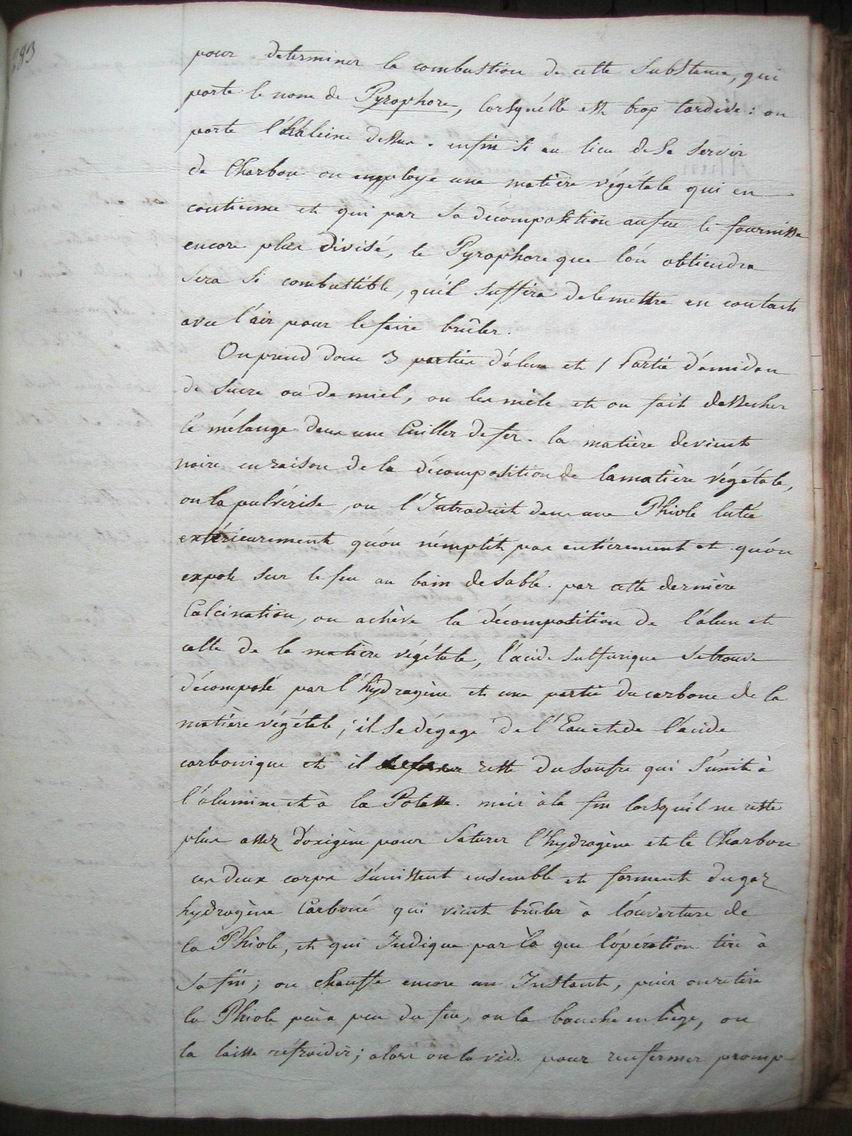 293
pour determiner la combustion de cette Substance, qui
porte le nom de Pyrophore, lorsqu'elle est trop tardive: on
porte l'haleine dessus. enfin si au lieu de se servir
de Charbon on employe une matière végétale qui en
contienne et qui par sa decomposition au feu le fournisse
encore plus divisé, le Pyrophore que l'on obtiendra
sera si combustible, qu'il suffira de le mettre en contact
avec l'air pour le faire brûler.
On prend donc 3 parties d'alun et 1 Partie d'amidon
de Sucre ou de miel, on les mêle et on fait dessecher
le mélange dans une Cuiller de fer. la matière devient
noire en raison de la décomposition de la matière végétale,
on la pulvérise, on l'Introduit dans une Phiole lutée
extérieurement qu'on n'emplit pas entièrement et qu'on
expose sur le feu au bain de sable. par cette dernière
Calcination, on achève la décomposition de l'alun et
celle de la matière végétale, l'acide sulfurique se trouve
décomposé par l'hydrogène et une partie du carbone de la
matière végétale; il se dégage de l'Eau et de l'acide
carbonique et il reste du soufre qui s'unit à
l'alumine et à la Potasse. mais à la fin lorsqu'il ne reste
plus assez d'oxigène pour Saturer l'hydrogène et le Charbon
ces deux corps s'unissent ensemble et forment du gaz
hydrogène Carboné qui vient brûler à l'ouverture de
la Phiole, et qui Indique par là que l'opération tire à
sa fin; on chauffe encore un Instant, puis on retire
la Phiole peu à peu du feu, on la bouche en liège, on
la laisse refroidir; alors on la vide pour renfermer promp